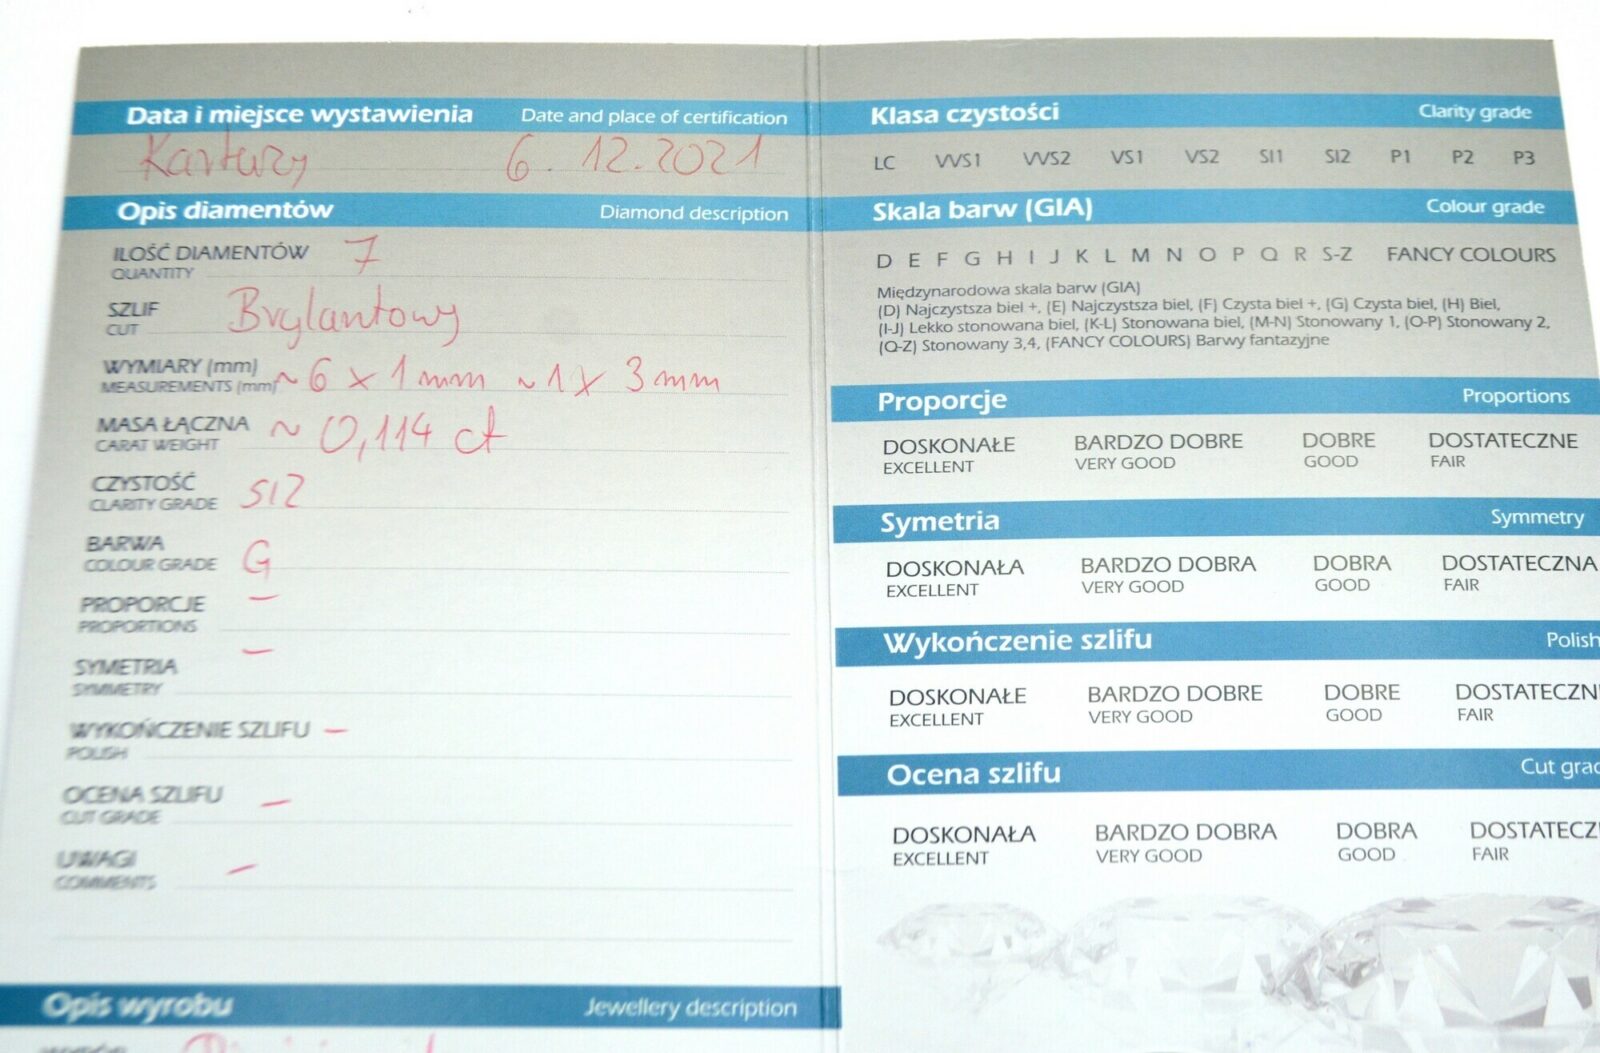 Data i miejsce wystawienia Date and place of certification
Kartuzy 6.12.2021
Opis diamentów Diamond description
ILOŚĆ DIAMENTÓW 7
QUANTITY
SZLIF Brylantowy
CUT
WYMIARY (mm) ~ 6 x 1 mm ~ 1 x 3 mm
MEASUREMENTS (mm)
MASA ŁĄCZNA ~ 0,114 ct
CARAT WEIGHT
CZYSTOŚĆ SI2
CLARITY GRADE
BARWA G
COLOUR GRADE
PROPORCJE –
PROPORTIONS
SYMETRIA –
SYMMETRY
WYKOŃCZENIE SZLIFU –
POLISH
OCENA SZLIFU –
CUT GRADE
UWAGI –
COMMENTS
Opis wyrobu Jewellery description
Klasa czystości Clarity grade
LC VVS1 VVS2 VS1 VS2 SI1 SI2 P1 P2 P3
Skala barw (GIA) Colour grade
D E F G H I J K L M N O P Q R S-Z FANCY COLOURS
Międzynarodowa skala barw (GIA)
(D) Najczystsza biel +, (E) Najczystsza biel, (F) Czysta biel +, (G) Czysta biel, (H) Biel,
(I-J) Lekko stonowana biel, (K-L) Stonowana biel, (M-N) Stonowany 1, (O-P) Stonowany 2,
(Q-Z) Stonowany 3,4, (FANCY COLOURS) Barwy fantazyjne
Proporcje Proportions
DOSKONAŁE BARDZO DOBRE DOBRE DOSTATECZNE
EXCELLENT VERY GOOD GOOD FAIR
Symetria Symmetry
DOSKONAŁA BARDZO DOBRA DOBRA DOSTATECZNA
EXCELLENT VERY GOOD GOOD FAIR
Wykończenie szlifu Polish
DOSKONAŁE BARDZO DOBRE DOBRE DOSTATECZN
EXCELLENT VERY GOOD GOOD FAIR
Ocena szlifu Cut grad
DOSKONAŁA BARDZO DOBRA DOBRA DOSTATECZ
EXCELLENT VERY GOOD GOOD FAIR